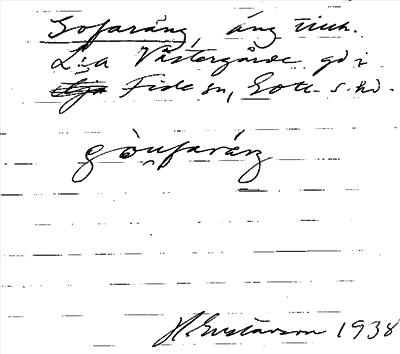 Gofaräng, äng tillh.
L:a Västergårde gd i
Fide sn, Gotl. s. hd.
gòu̯fará̈ŋ
H Gustavson 1938